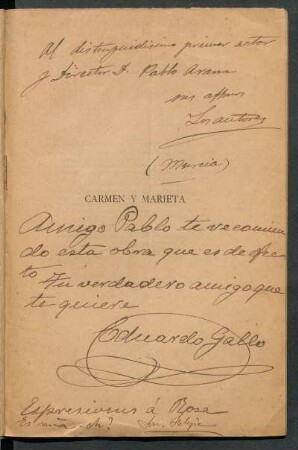 Al distinguidisimo primer actor
y Director D. Pablo Arana
sus affmos
Los autores
(Murcia)
CARMEN Y MARIETA
Amigo Pablo te recomien
do esta obra que es de efec
to Tu verdadero amigo que
te quiere
Eduardo Gallo
Espresiones á Rosa